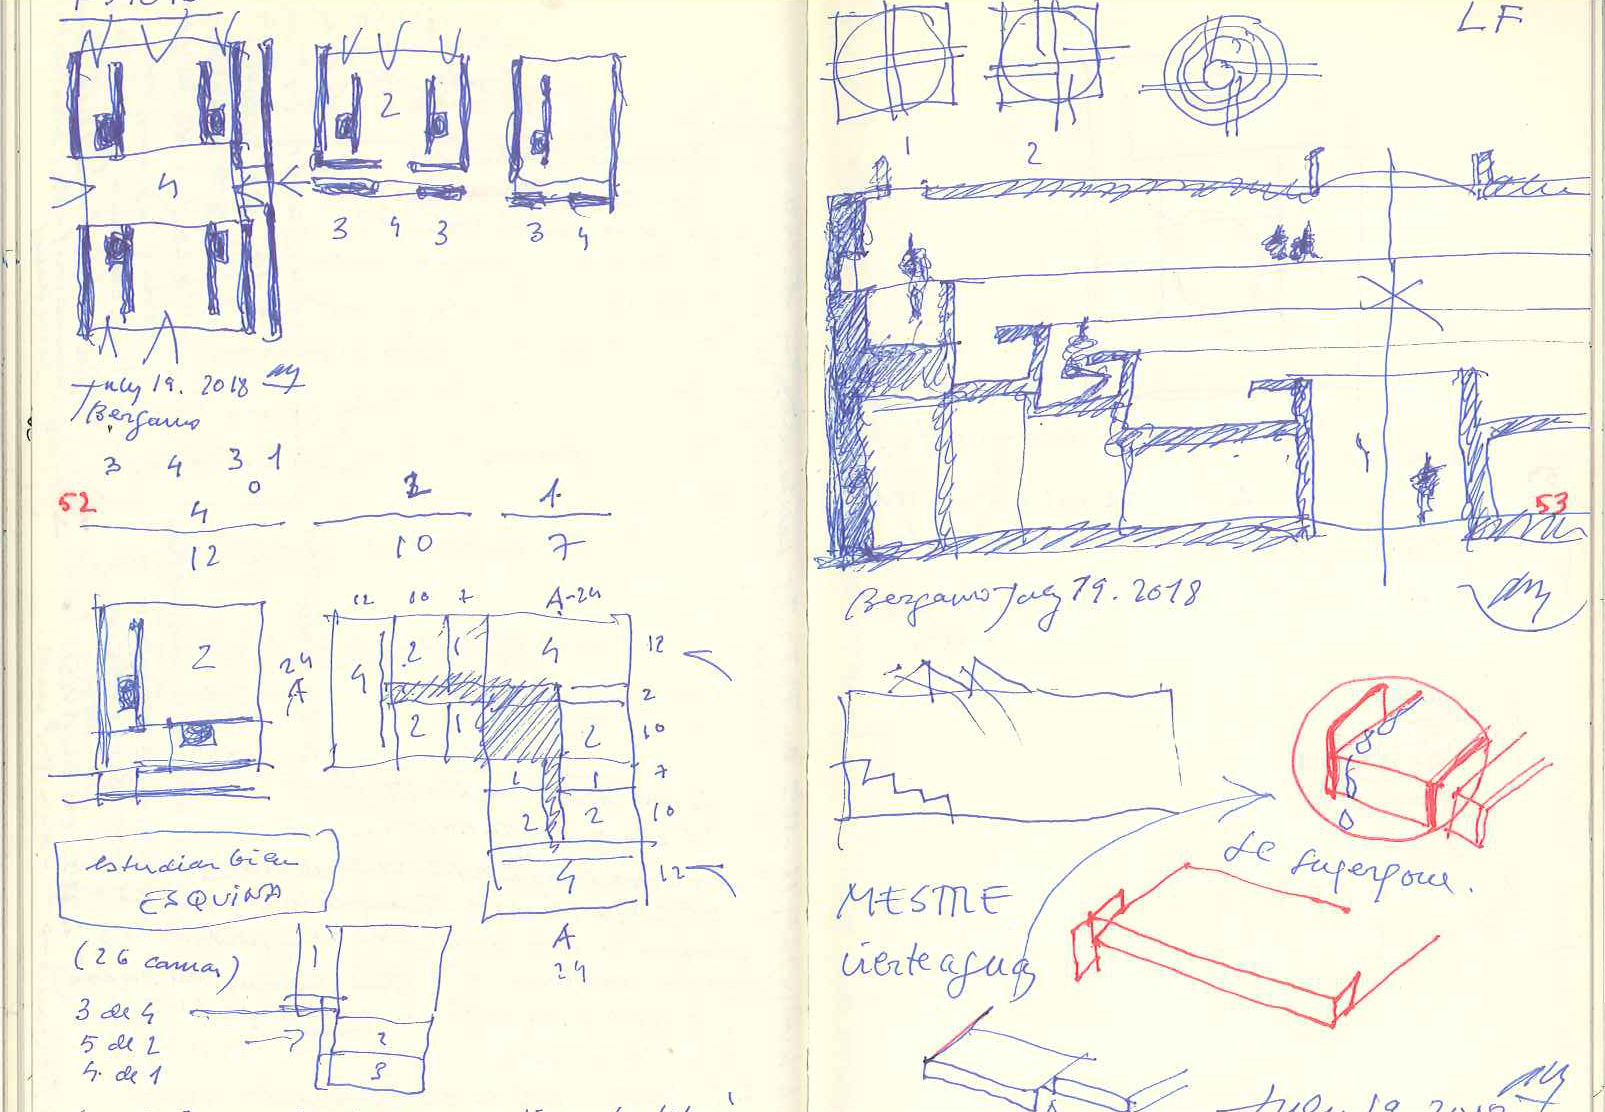 2
4
3 4 3
3 4
July 19. 2018
Bergamo
3 4 3 1
0
52
4
12
10
1
7
2
24
A
12 10 7 A-24
4 2 1 4 12
2
2 1 2 10
1 1 7
2 2 10
4 12
A
24
estudiar bien
ESQUINA
(26 camas)
3 de 4
5 de 2
4 de 1
1
2
3
LF
1 2
53
Bergamo July 19. 2018
se superpone.
MESTRE
vierteaguas
July 19. 2018